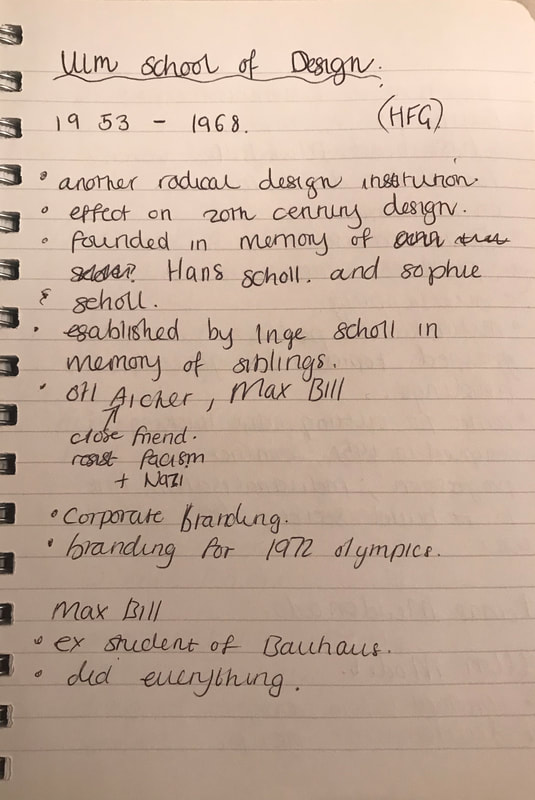 Ulm School of Design.
1953 - 1968. (HFG)
• another radical design institution.
• effect on 20th century design.
• founded in memory of
Hans scholl. and sophie
scholl.
• esablished by Inge scholl in
memory of siblings.
• Otl Aicher, Max Bill
close friend.
resist facism
+ Nazi
• Corporate Branding.
• branding for 1972 olympics.
Max Bill
• ex student of Bauhaus.
• did everything.